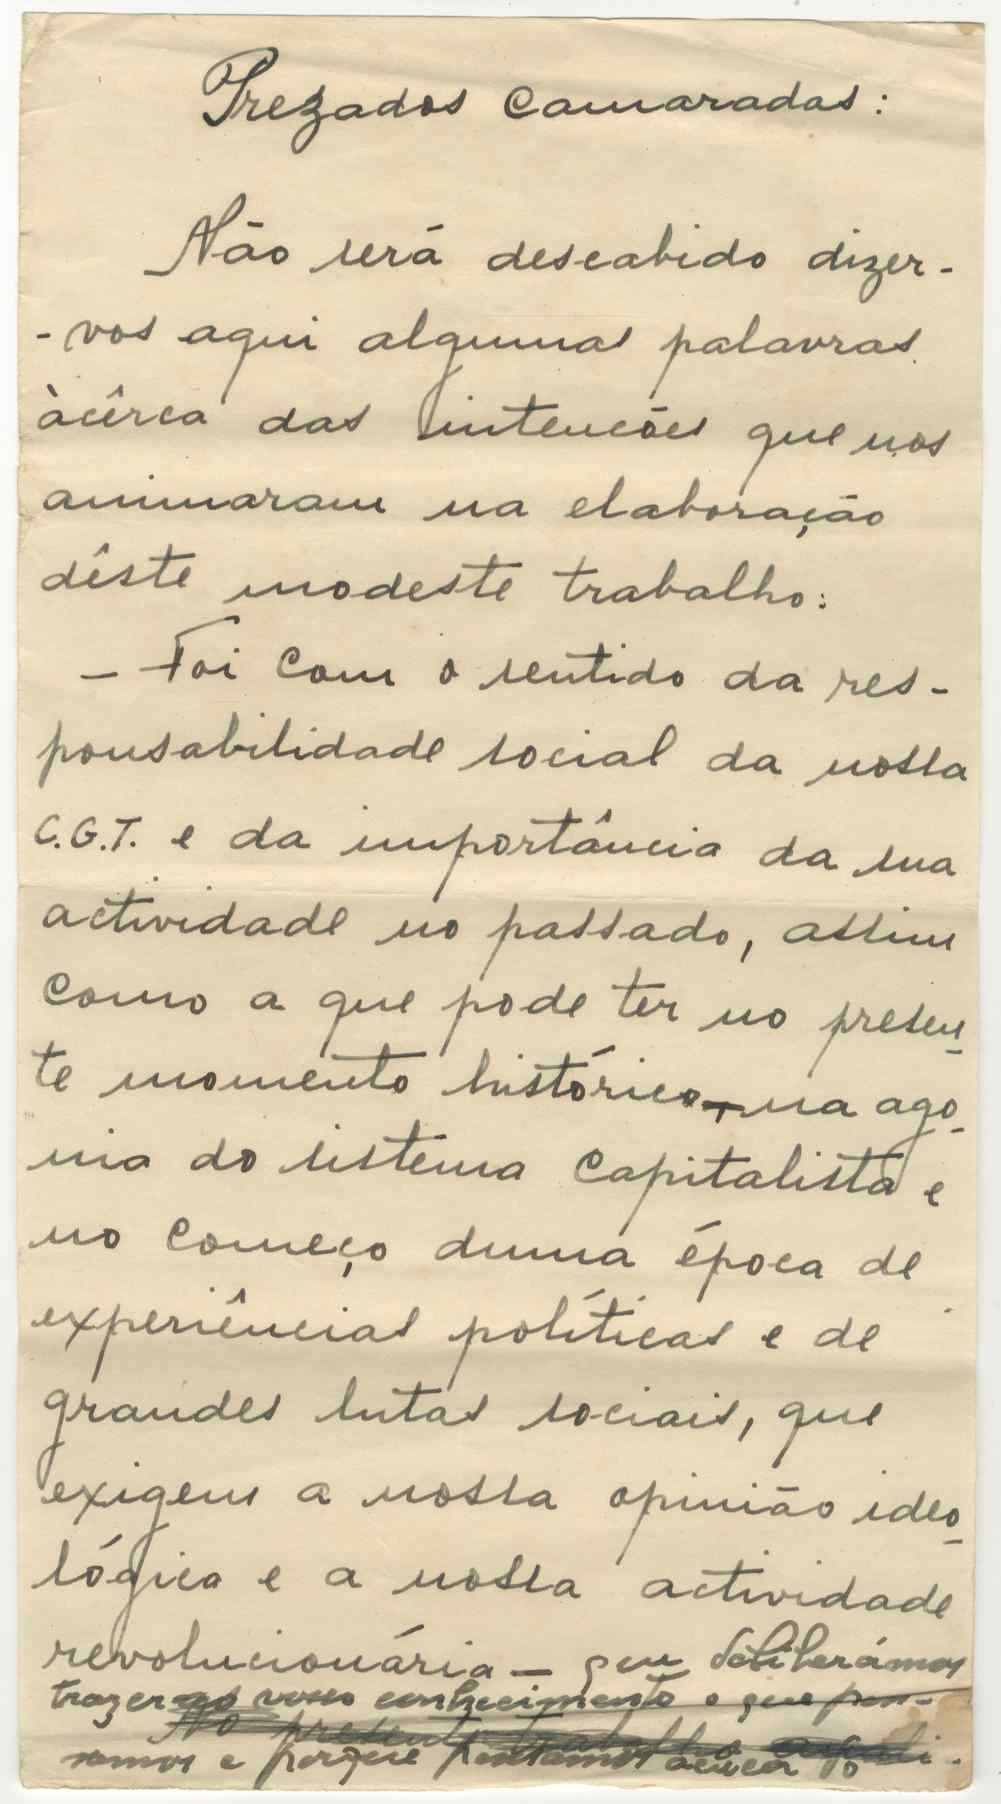 Prezados camaradas:
Não será descabido dizer-
-vos aqui algumas palavras
àcêrca das intencões que nos
animaram na elaboração
dêste modeste trabalho:
- Foi com o sentido da res-
ponsabilidade social da nossa
C.G.T. e da importância da sua
actividade no passado, assim
como a que pode ter no presen-
te momento histórico - na ago-
nia do sistema capitalista e
no começo duma época de
experiências políticas e de
grandes lutas sociais, que
exigem a nossa opinião ideo-
lógica e a nossa actividade
revolucionária - que deliberámos
trazer ao vosso conhecimento o que pen-
No presente trabalho
samos e porque pensamos